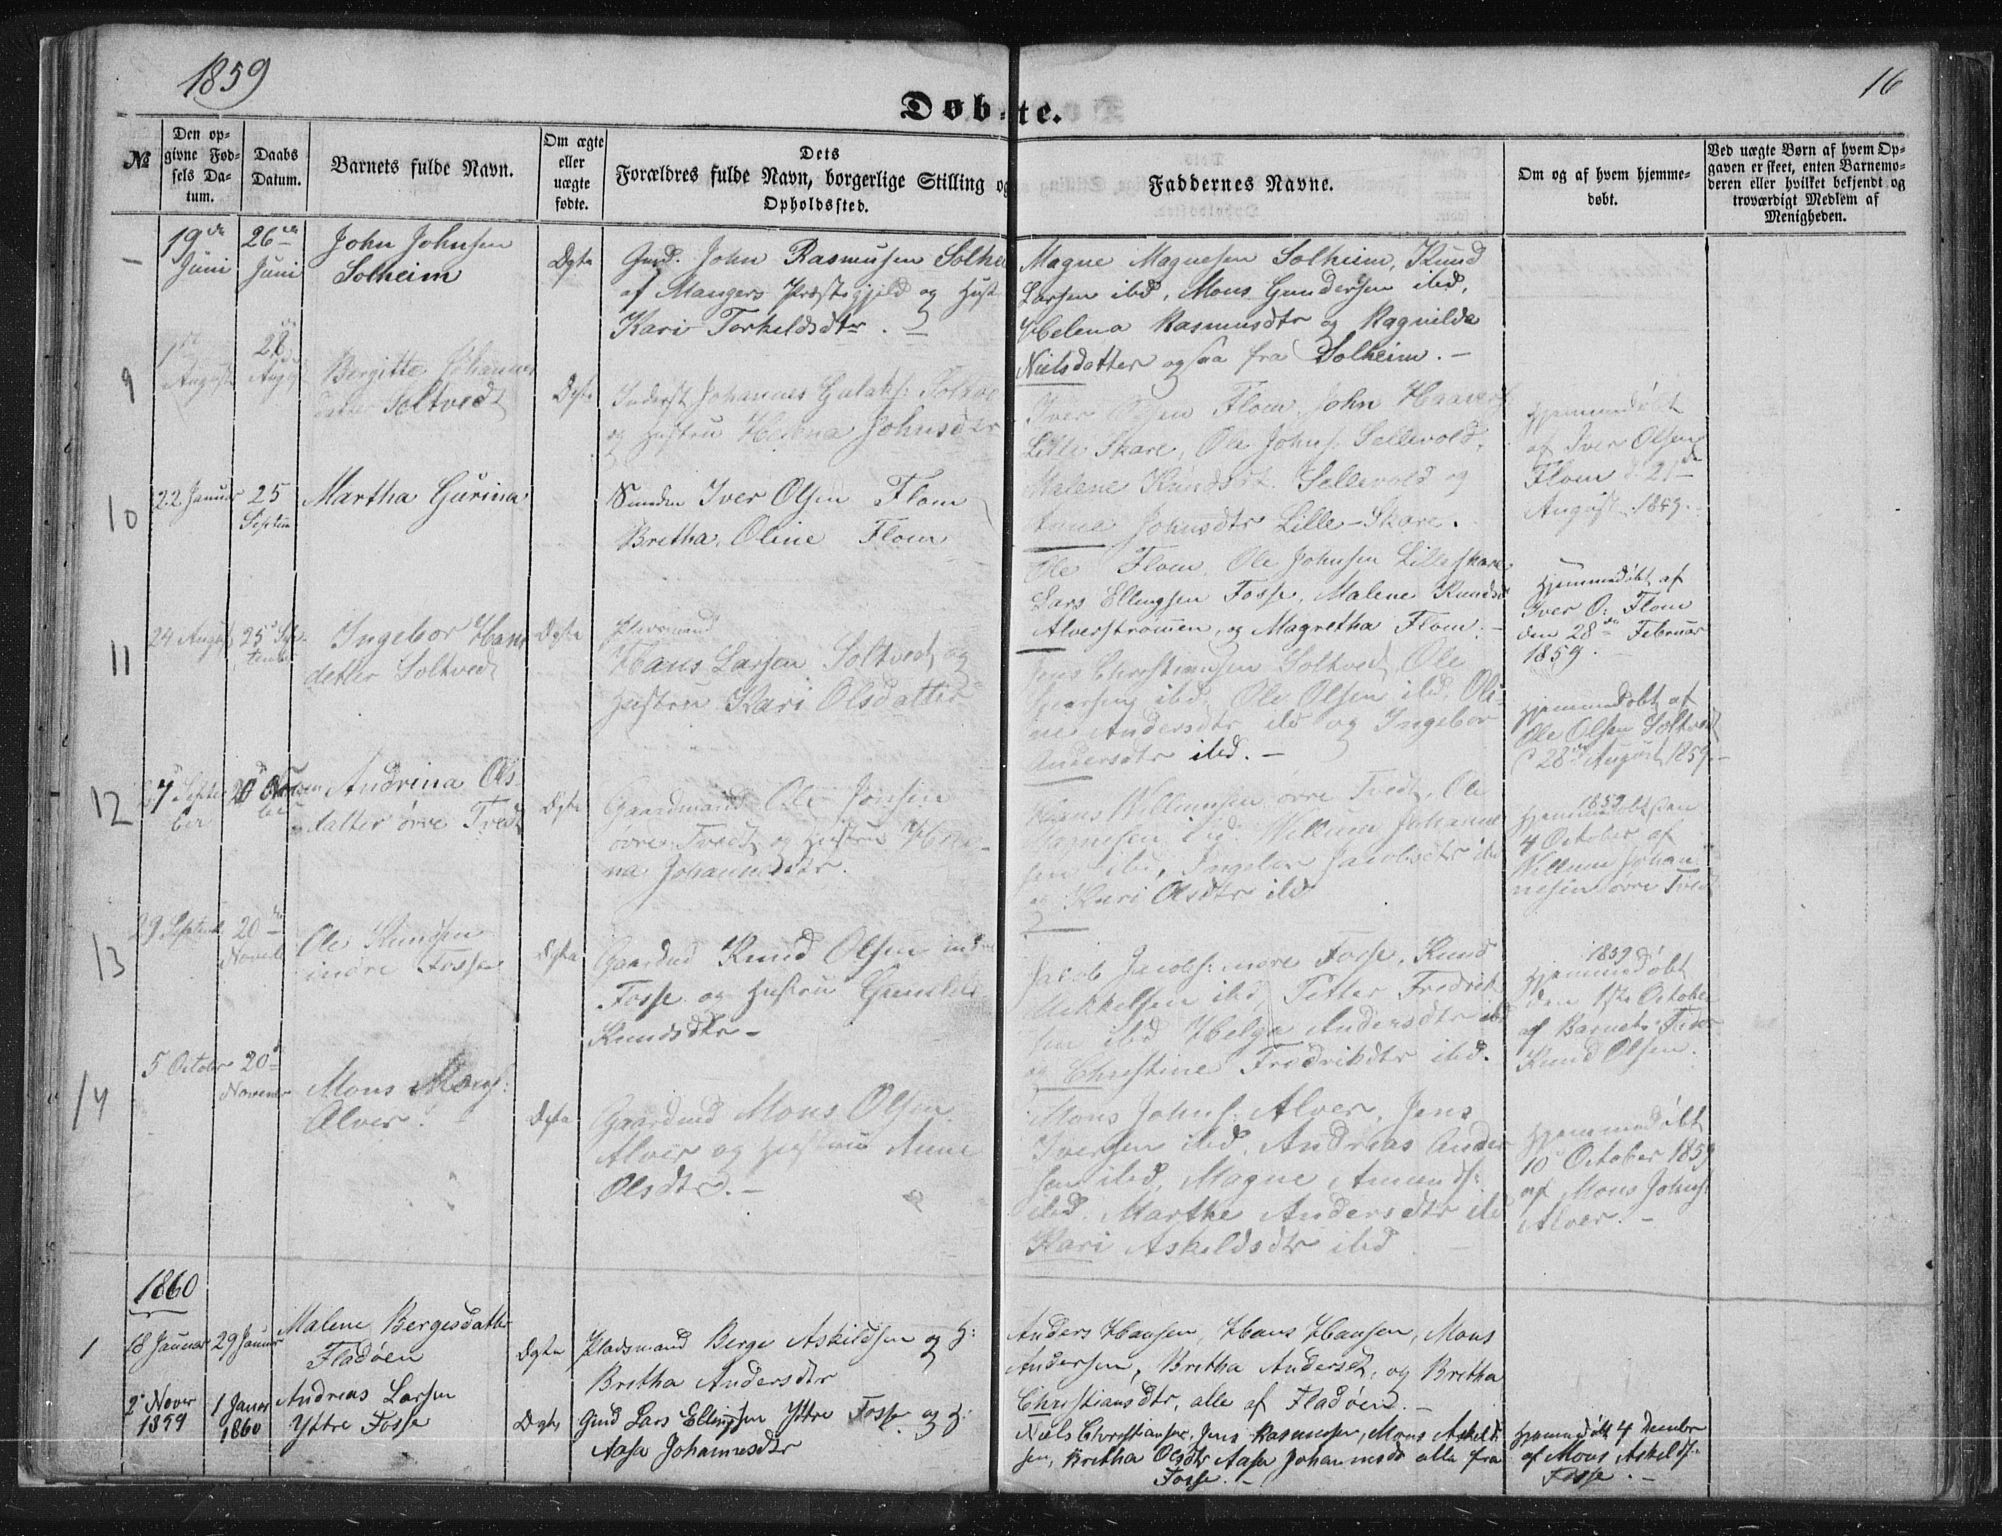 1859
16
Døbte.
№
Den op-
givne Fød-
sels Da-
tum.
Daabs
Datum.
Barnets fulde Navn.
Om ægte
eller
uægte
fødte.
Dets
Forældres fulde Navn, borgerlige Stilling og
Opholdssted.
Faddernes Navne.
Om og af hvem hjemme-
døbt.
Ved uægte Børn af hvem Op-
gaven er skeet, enten Barnemo-
deren eller hvilket bekjendt og
troværdigt Medlem af
Menigheden.
19de
Juni
26de
Juni
John Johnsen
Solheim
Ægte
Gmd. John Rasmusen Solhe
af Mangers Præstegjeld og Hust
Kari Torkeldsdtr. –
Magne Magnesen Solheim, Knud
Larsen ibd, Mons Gundersen ibd,
Helena Rasmusdtr og Ragnilda
Nielsdatter ogsaa fra Solheim. –
9
August
28
August
Bergitte Johannes
datter Soltvedt
Ægte
Inderst Johannes
og Hustru Helena Johnsdtr
Iver Olsen Flom, John
Lille Skare, Ole Johns. Sellevold,
Malene Knudsdt. Sellevold og
Anne Johnsdtr Lille-Skare.
Hjemmedøbt
af Iver Olsen
Flom d 21de
August 1859. –
10
22 Januar
25
Septem
Martha Gurina
Iver Olsen Flom
Bretha Oline Flom
Ole Flom, Ole Johnsen Lilleskare
Lars Ellingsen Fosse, Malene Knudsd
Alverstrømen, og Magretha Flom. –
Hjemmedøbt af
Iver O: Flom
den 28de Februar
1859. –
11
24 August
25de Sep-
tember
Ingebor Hans
datter Soltvedt
Ægte
Pladsmand
Hans Larsen Soltvedt og
Hustru Kari Olsdatter
Jens Christiansen Soltvedt, Ole
ibd, Ole Olsen ibd, Oli-
ne Andersdtr ibd og Ingebor
Andersdtr ibd. –
Hjemmedøbt af
Ole Olsen Soltvedt
28de August 1859. –
12
Septem
ber
20
Andrina Ols
datter øvre Tvedt
Ægte
Gaardmand Ole Jonsen
øvre Tvedt og Hustru
na Johannesdtr.
Hans Willumsen øvre Tvedt, Ole
Magnesen ibd, Willum Johanne
sen ibd, Ingebor Jacobsdtr ibd
og Kari Olsdtr ibd
1859
Hjemmedøbt den
4 October af
Willum Johan
nesen øvre Tvedt
13
29 Septemb
20de
Novebr
Ole Knudsen
indre Fosse
Ægte
Gaardmd Knud Olsen indre
Fosse og Hustru Gunild
Knudsdtr –
Jacob Jacobs: indre Fosse, Knud
Mikkelsen ibd, Petter Fredrik
sen ibd, Helga Andersdtr ibd
og Christine Fredriksdtr ibd.
1859
Hjemmedøbt
den 1ste October
af Barnets Fader
Knud Olsen.
14
5 October
20de
November
Mons Mons:
Alver.
Ægte
Gaardmd Mons Olsen
Alver og Hustru Anne
Olsdtr. –
Mons Johns: Alver, Jens
Iversen ibd, Andreas Ander
sen ibd, Magne Amunds:
ibd. Marthe Andersdtr ibd
Kari Askeldsdtr ibd
Hjemmedøbt
10 October 1859
af Mons Johns:
Alver. –
1860
1
18 Januar
29 Januar
Malene Bergesdatter
Fladøen
Ægte
Pladsmand Berge Askildsen og H:
Bretha Andersdtr
Anders Hansen, Hans Hansen, Mons
Andersen, Bretha Andersdt, og Bretha
Christiansdtr, alle af Fladøen. –
2de Novbr
1859
1 Januar
1860
Andreas Larsen
Yttre Fosse
Ægte
Gmd Lars Ellingsen Yttre Fosse og H:
Aasa Johannesdtr
Niels Christiansen, Jens Rasmusen, Mons Askild
sen, Bretha Olsdtr Aasa Johannesdr alle fra
Fosse. –
Hjemmedøbt 4 December
af Mons Askilds:
Fosse. –